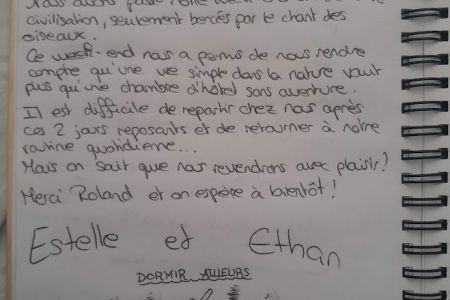 Nous avons passé notre week-end loin de la
civilisation, seulement bercés par le chant des
oiseaux.
Ce week-end nous a permis de nous rendre
compte qu'une vie simple dans la nature vaut
plus qu'une chambre d'hôtel sans aventure.
Il est difficile de repartir chez nous après
ces 2 jours reposants et de retourner à notre
routine quotidienne...
Mais on sait que nous reviendrons avec plaisir!
Merci Roland et on espère à bientôt!
Estelle et Ethan
DORMIR AILLEURS